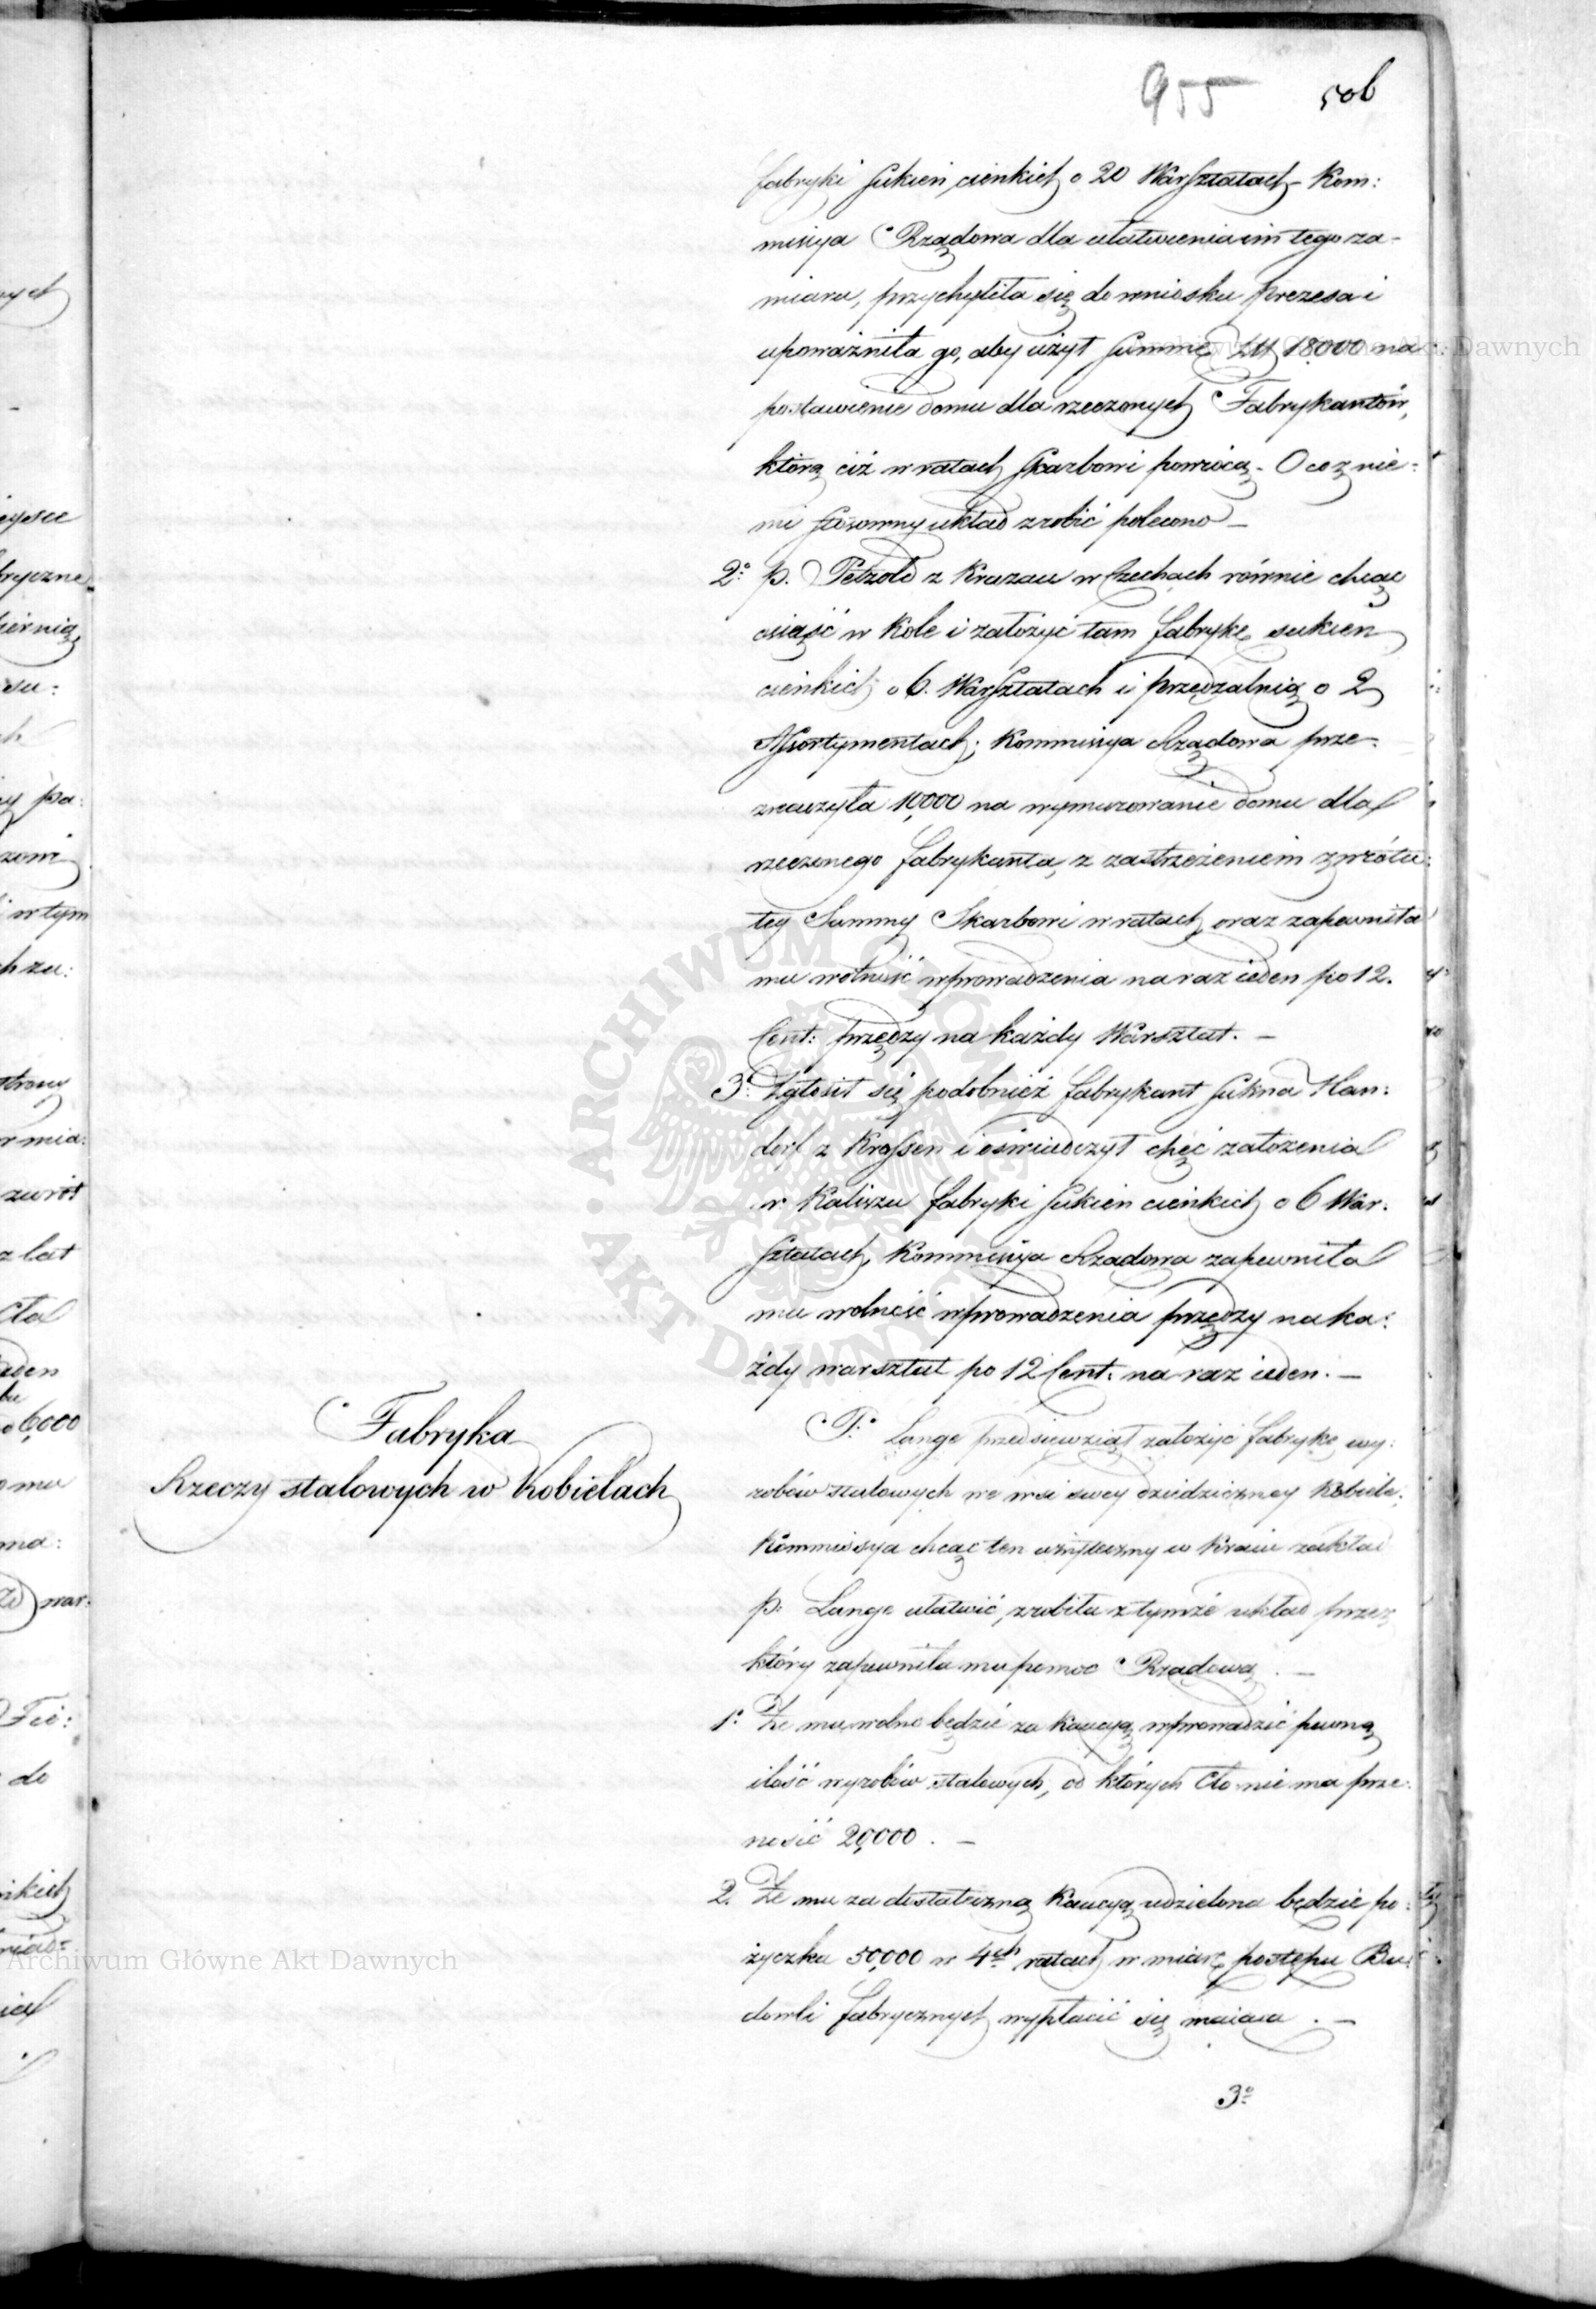 955 506
fabryki sukien cienkich o 20 Warsztatach – Kom:
missya Rządowa dla ułatwienia im tego za-
miaru, przychyliła się do wniosku prezesa i
upoważniła go, aby użył Summę Zł 18000 na
postawienie domu dla rzeczonych Fabrykantów,
którą ciż w ratach Skarbowi powrócą. O co z nie-
mi stosowny układ zrobić polecono –
2º p. Petzold z Krazau w Czechach równie chcąc
osiąść w Kole i założyć tam fabrykę sukien
cienkich o 6. Warsztatach i przędzalnią o 2
Assortymentach; Kommissya Rządowa prze-
znaczyła 10,000 na wymurowanie domu dla
rzeczonego fabrykanta, z zastrzeżeniem zwrótu
tey Summy Skarbowi w ratach, oraz zapewniła
mu wolność wprowadzenia na raz ieden po 12.
Cent: przędzy na każdy Warsztat. –
3º Zgłosił się podobnież fabrykant sukna Han:
dorf z Krossen i oświadczył chęć założenia
w Kaliszu fabryki sukien cienkich o 6 War:
sztatach, Kommissya Rządowa zapewniła
mu wolność wprowadzenia przędzy na ka:
żdy warsztat po 12 Cent: na raz ieden. –
Fabryka
Rzeczy stalowych w Kobielach
P. Lange przedsięwziął założyć fabrykę wy:
robów stalowych we wsi swey dziedziczney Kobiele.
Kommissya chcąc ten użyteczny w Kraiu zakład
p: Lange ułatwić, zrobiła z tymże układ przez
który zapewniła mu pomoc Rządową. –
1º Że mu wolno będzie za Kaucyą wprowadzić pewną
ilość wyrobów stalowych, od których Cło nie ma prze:
nosić 20,000. –
2. Że mu za dostateczną Kaucyą udzielona będzie po:
życzka 50,000 w 4ch ratach w miarę postępu Bu:
dowli fabrycznych wypłacić się maiąca. –
3º
Archiwum Główne Akt Dawnych